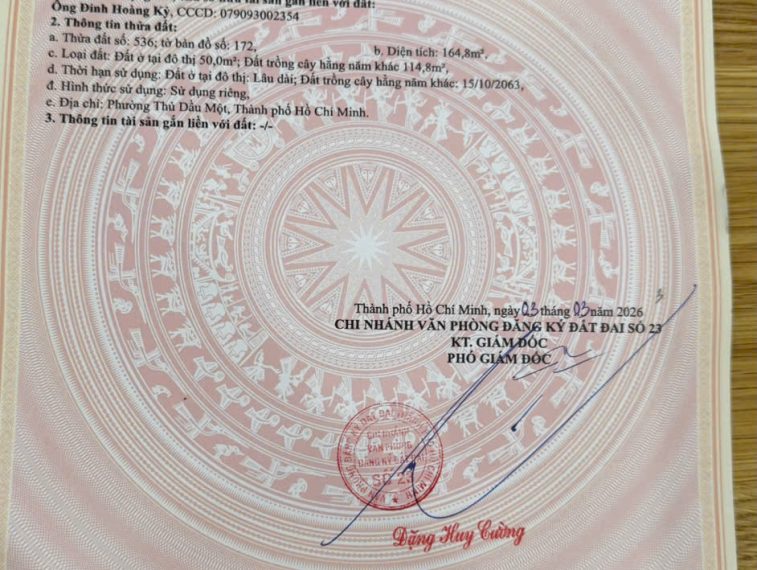 Ông Đinh Hoàng Kỳ, CCCD: 079093002354
2. Thông tin thửa đất:
a. Thửa đất số: 536; tờ bản đồ số: 172,
b. Diện tích: 164,8m²,
c. Loại đất: Đất ở tại đô thị 50,0m²; Đất trồng cây hằng năm khác 114,8m²,
d. Thời hạn sử dụng: Đất ở tại đô thị: Lâu dài; Đất trồng cây hằng năm khác: 15/10/2063,
đ. Hình thức sử dụng: Sử dụng riêng,
e. Địa chỉ: Phường Thủ Dầu Một, Thành phố Hồ Chí Minh.
3. Thông tin tài sản gắn liền với đất: -/-
Thành phố Hồ Chí Minh, ngày 03 tháng 03 năm 2026
CHI NHÁNH VĂN PHÒNG ĐĂNG KÝ ĐẤT ĐAI SỐ 23
KT. GIÁM ĐỐC
PHÓ GIÁM ĐỐC
CHI NHÁNH
VĂN PHÒNG
ĐĂNG KÝ ĐẤT ĐAI
SỐ 23
Đặng Huy Cường